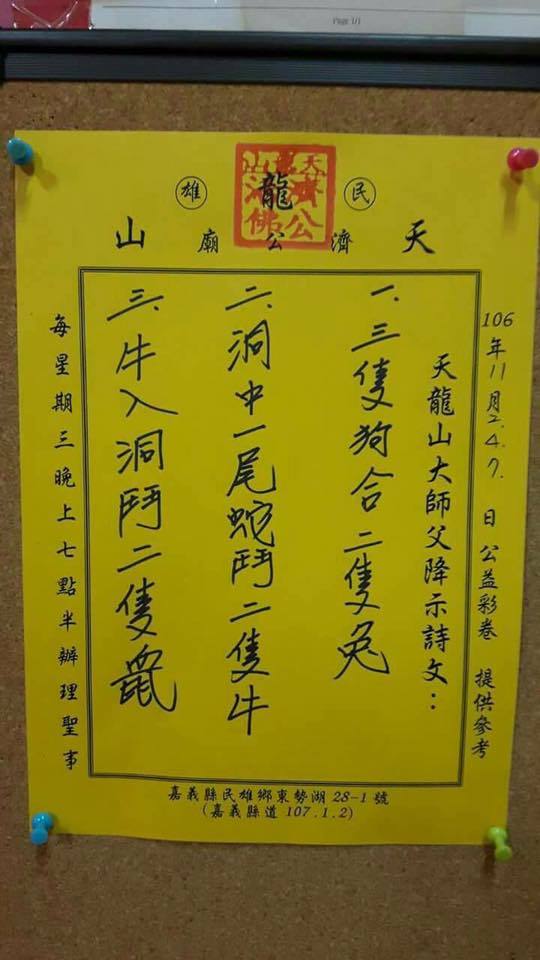 Page 1/1
民雄
天龍山
濟公廟
天龍山
濟公
活佛
106年11月2.4.7.日公益彩卷 提供參考
天龍山大師父降示詩文：
一、三隻狗合二隻兔
二、洞中一尾蛇鬥二隻牛
三、牛入洞鬥二隻鼠
每星期三晚上七點半辦理聖事
嘉義縣民雄鄉東勢湖 28-1 號
(嘉義縣道 107.1.2)